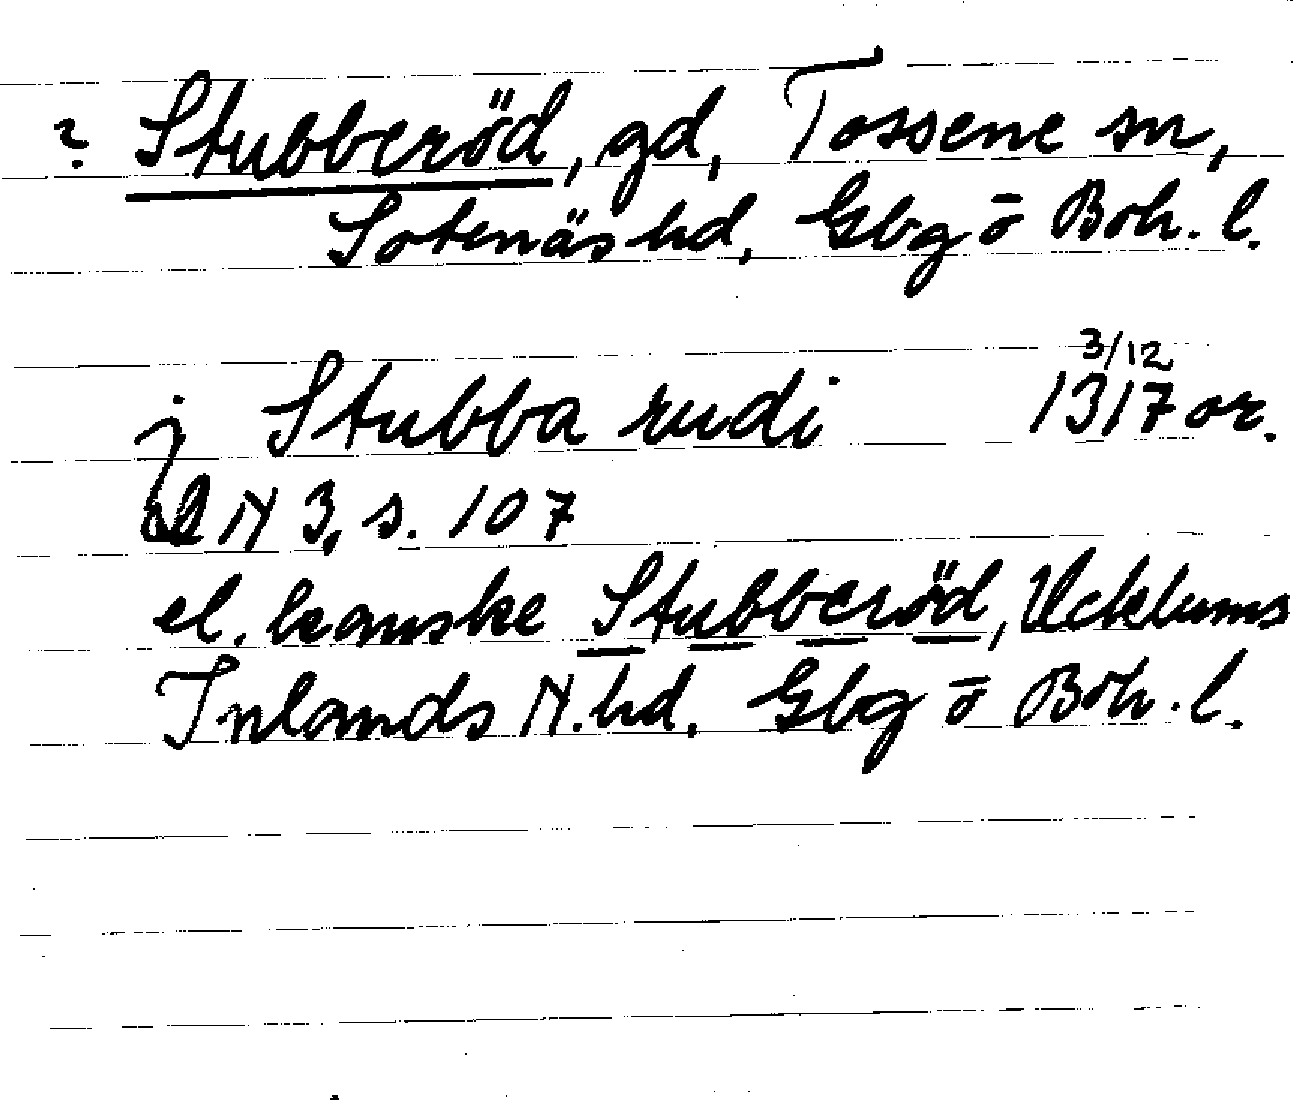 ? Stubberöd, gd, Tossene sn,
Sotenäs hd, Gbg ō Boh. l.
3/12
j Stubba rudi 1317 or.
N 3, s. 107
el. kanske Stubberöd, Ucklums
Inlands N. hd, Gbg ō Boh. l.